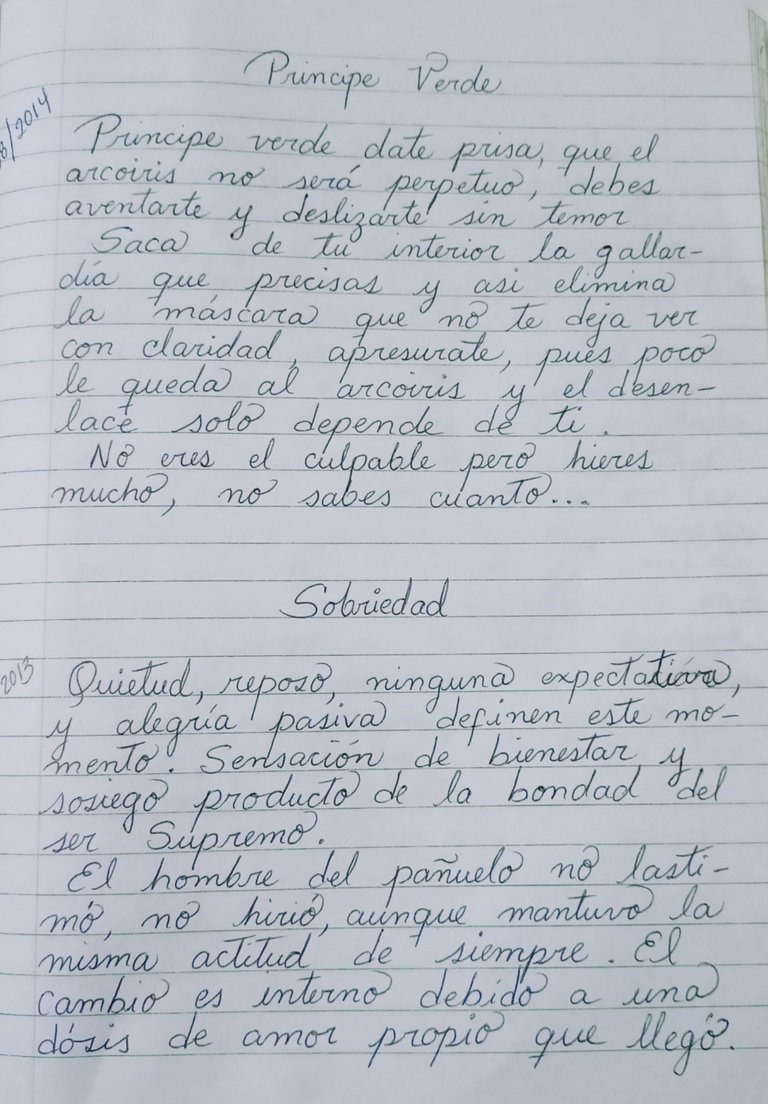 Principe Verde
8/2014
Principe verde date prisa, que el
arcoiris no será perpetuo, debes
aventarte y deslizarte sin temor
Saca de tu interior la gallar-
día que precisas y asi elimina
la máscara que no te deja ver
con claridad, apresurate, pues poco
le queda al arcoiris y el desen-
lace solo depende de ti.
No eres el culpable pero hieres
mucho, no sabes cuanto...
Sobriedad
2013
Quietud, reposo, ninguna expectativa,
y alegría pasiva definen este mo-
mento. Sensación de bienestar y
sosiego producto de la bondad del
ser Supremo.
El hombre del pañuelo no lasti-
mó, no hirió, aunque mantuvo la
misma actitud de siempre. El
cambio es interno debido a una
dósis de amor propio que llegó.